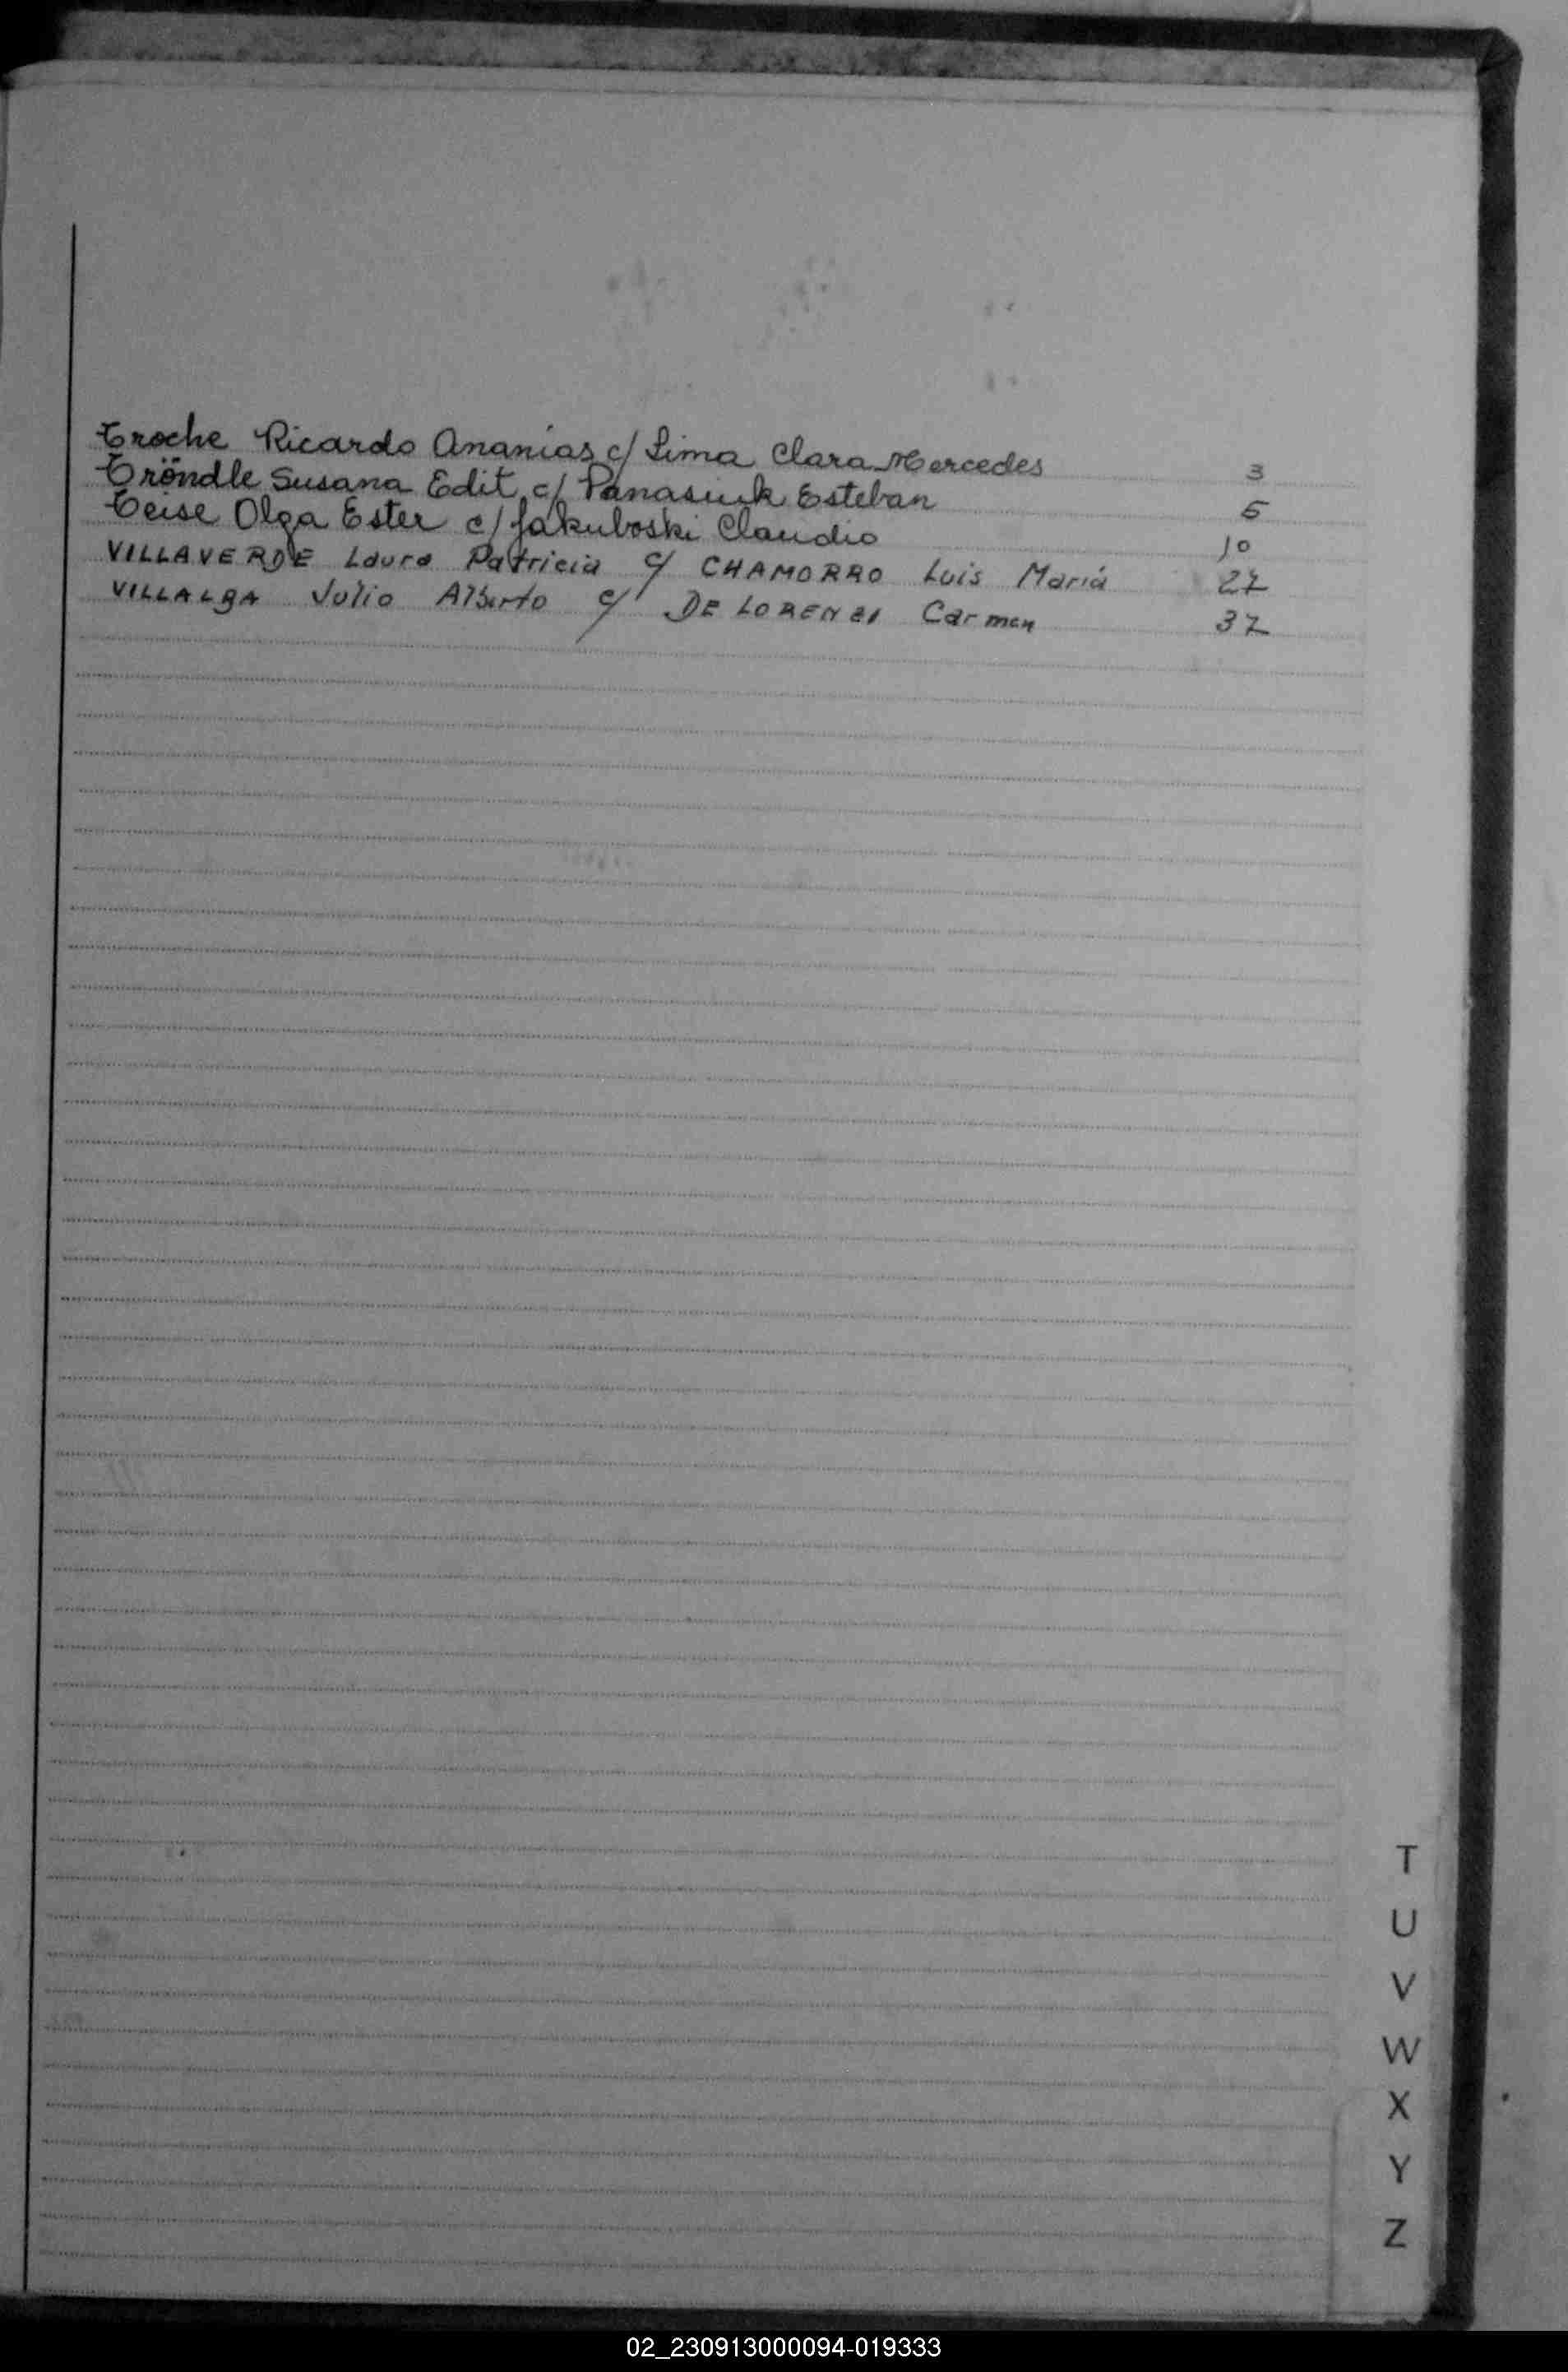 Troche Ricardo Ananías c/ Lima Clara Mercedes 3
Tröndle Susana Edit c/ Panasiuk Esteban 5
Teise Olga Ester c/ Jakuboski Claudio 10
VILLAVERDE Laura Patricia c/ CHAMORRO Luis María 27
VILLALBA Julio Alberto c/ DE LORENZI Carmen 37
T
U
V
W
X
Y
Z
02_230913000094-019333